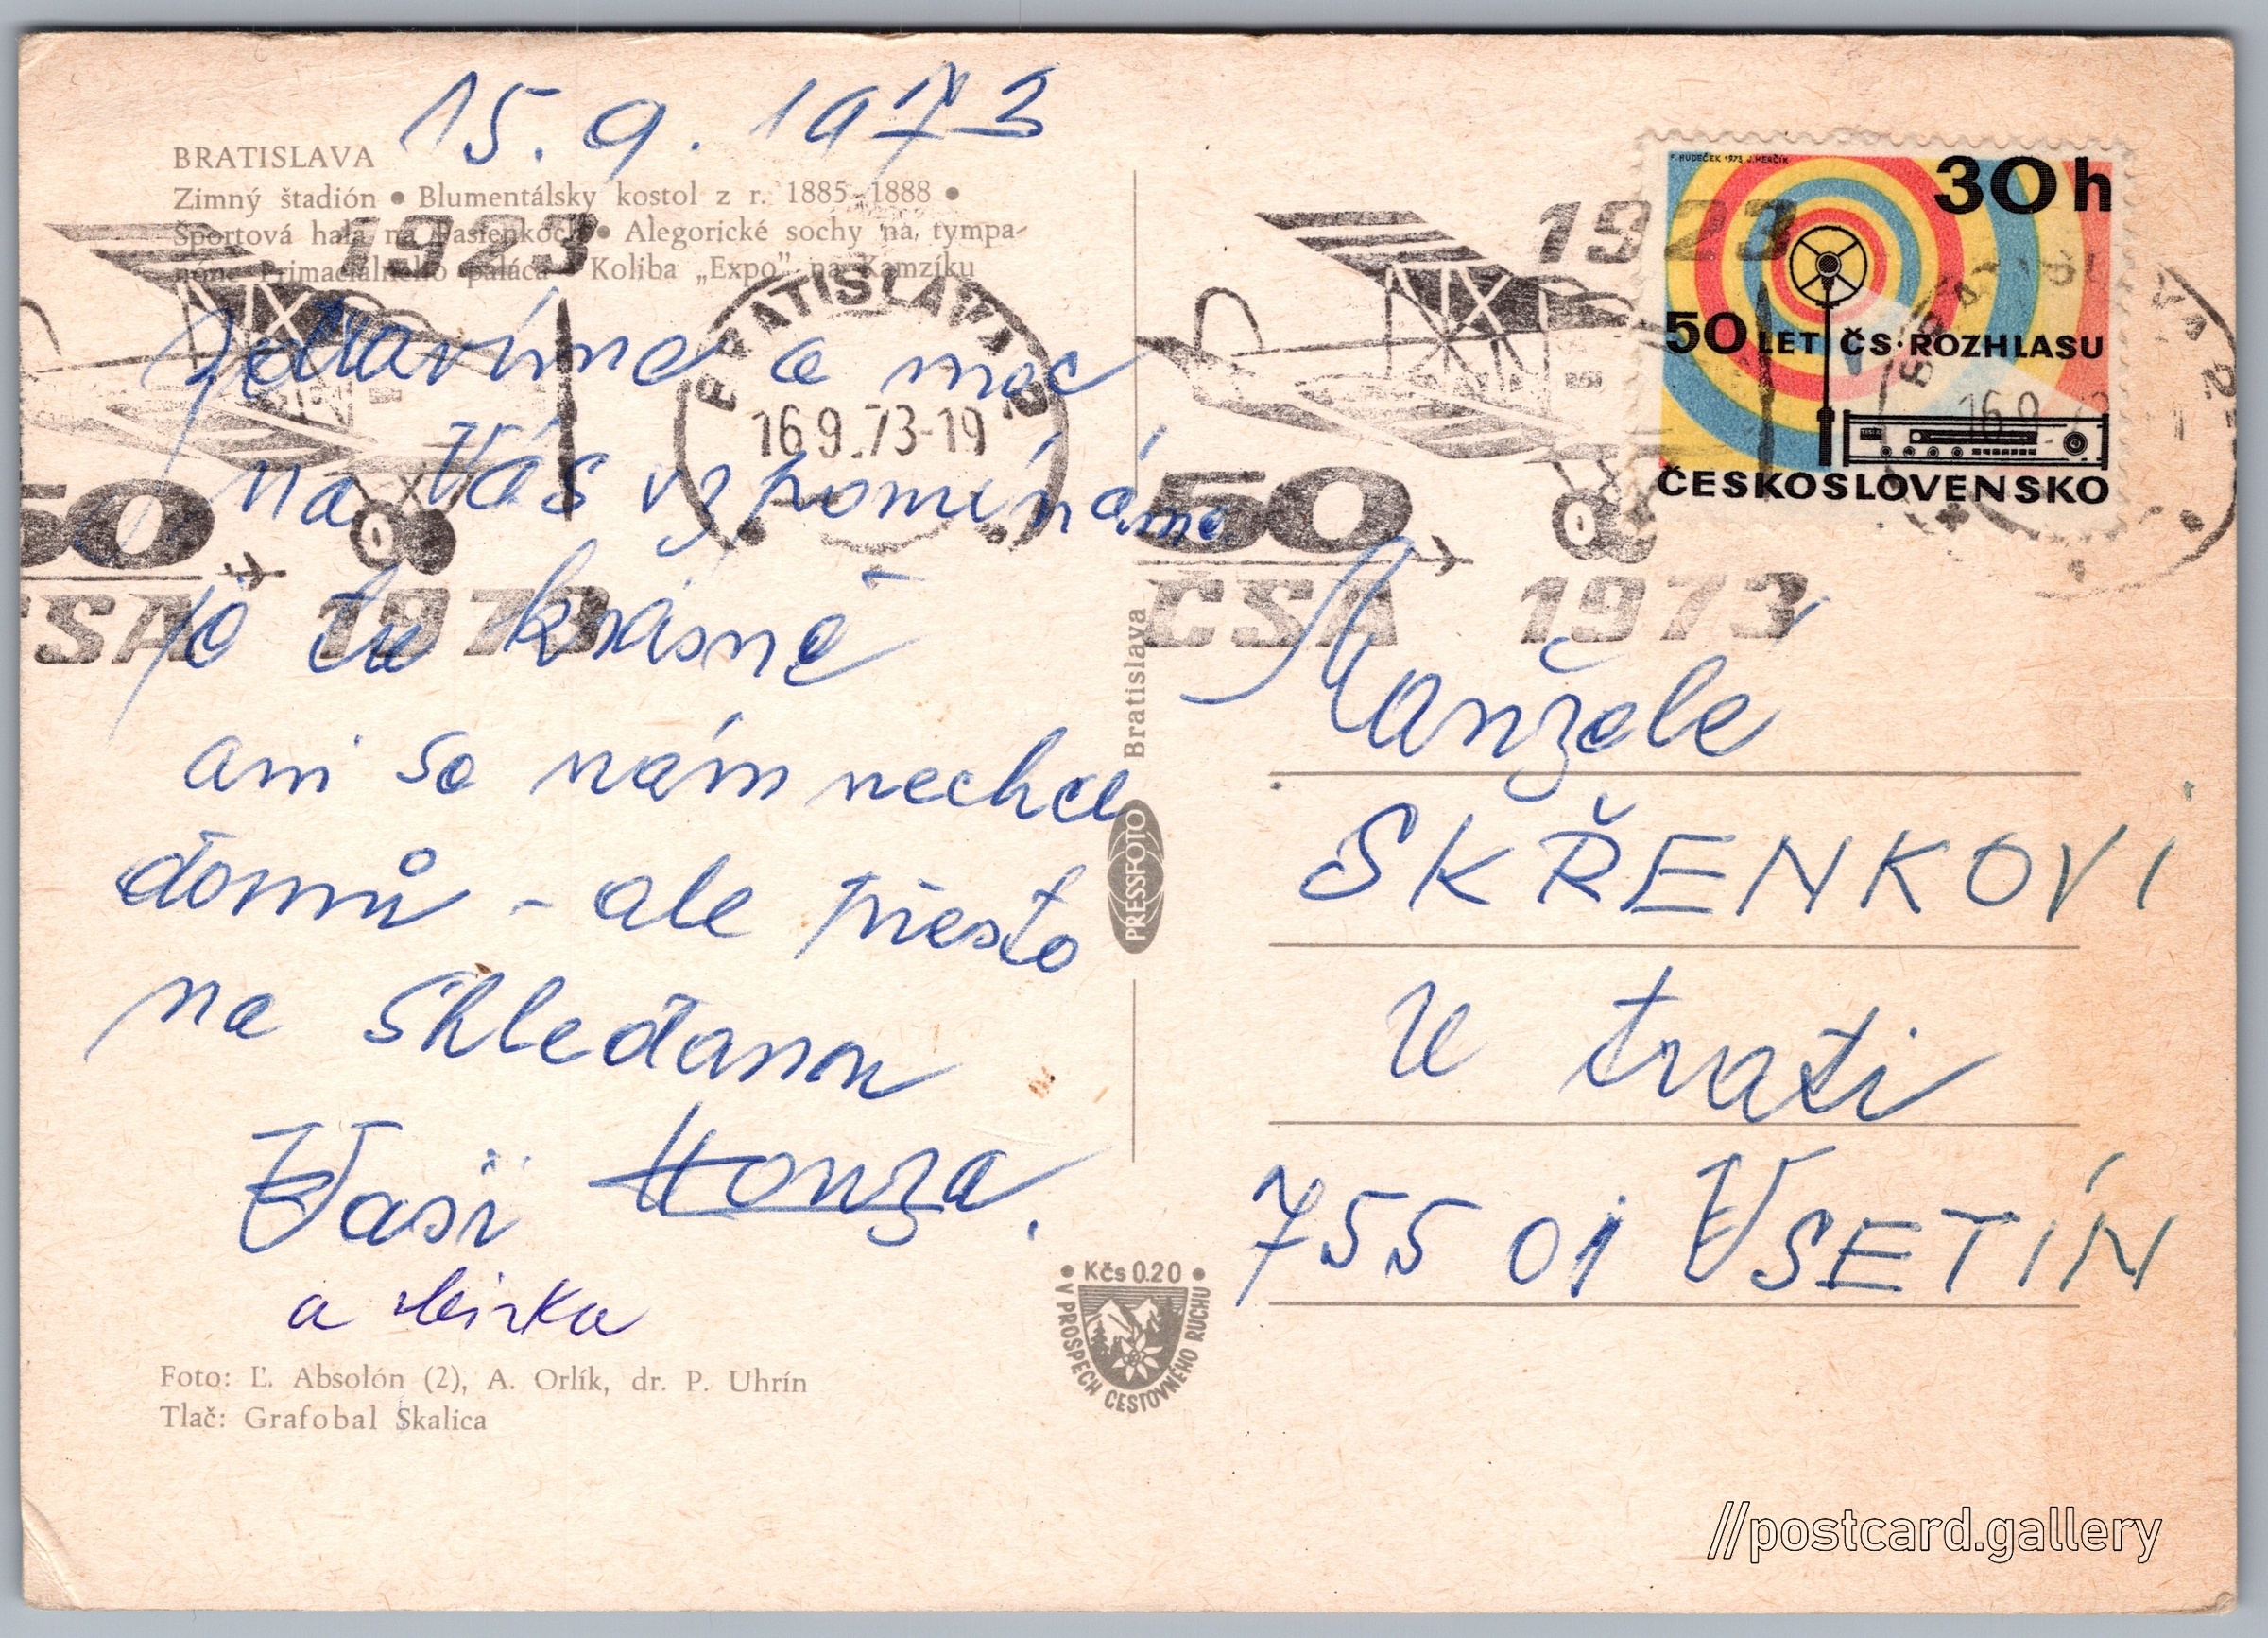 15. 9. 1973
BRATISLAVA
Zimný štadión • Blumentálsky kostol z r. 1885-1888 •
Športová hala na Pasienkoch • Alegorické sochy na tympa-
nóne Primaciálneho paláca • Koliba „Expo” na Kamzíku
Zdravíme a moc
na Vás vzpomínáme
je tu krásně
ani se nám nechce
domů - ale přesto
na shledanou
Vaši Honza.
a
Foto: Ľ. Absolón (2), A. Orlík, dr. P. Uhrín
Tlač: Grafobal Skalica
1923
50
ČSA 1973
BRATISLAVA
16.9.73-19
Bratislava
PRESSFOTO
• Kčs 0.20 •
V PROSPECH CESTOVNÉHO RUCHU
1923
50
ČSA 1973
F. HUDEČEK 1973 J. HERČÍK
30h
50 LET ČS. ROZHLASU
ČESKOSLOVENSKO
BRATISLAVA 2
16.9.
Manželé
SKŘENKOVI
U trati
755 01 VSETÍN
//postcard.gallery